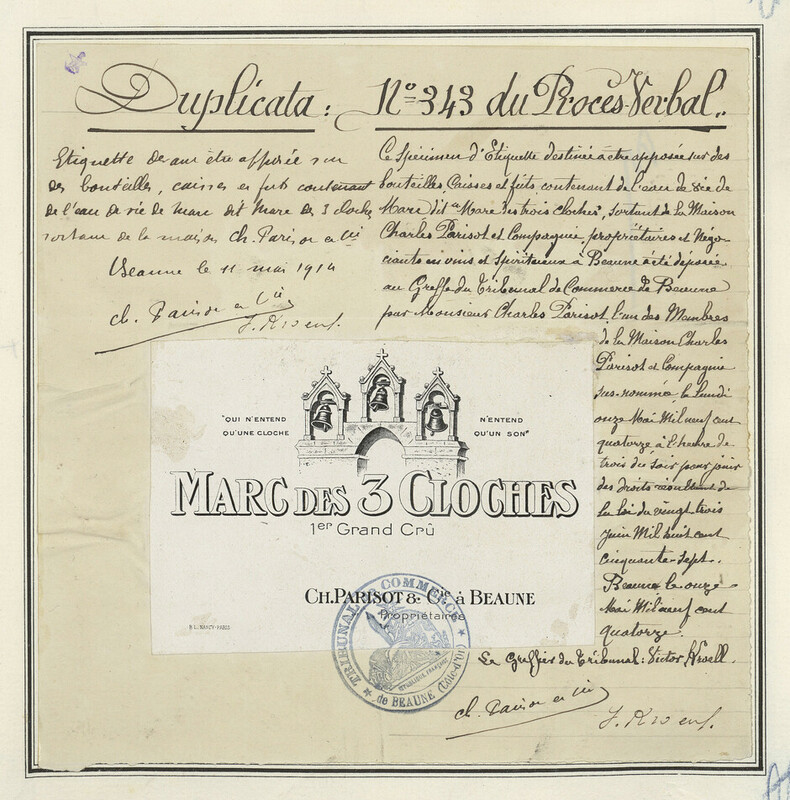 Duplicata : N° 343 du Procès-Verbal.
Etiquette devant être apposée sur
des bouteilles, caisses et futs contenant
de l'eau de vie de marc dit Marc des 3 cloches
sortant de la maison Ch. Parisot et Cie
Beaune le 11 mai 1914
Ch. Parisot et Cie
Ce Spécimen d'Etiquette destinée à être apposée sur des
bouteilles, Caisses et fûts, contenant de l'eau de vie de
Marc dit "Marc des trois Cloches", sortant de la Maison
Charles Parisot et Compagnie, propriétaires et Négo
ciants en vins et Spiritueux à Beaune a été déposée
au Greffe du Tribunal de Commerce de Beaune
par Monsieur Charles Parisot, l'un des Membres
de la Maison Charles
Parisot et Compagnie
sus-nommé, le Lundi
onze Mai Mil neuf cent
quatorze à l'heure de
trois du soir pour jouir
des droits résultant de
la loi du vingt trois
juin Mil huit cent
cinquante-sept.
Beaune le onze
Mai Mil neuf cent
quatorze.
Le Greffier du Tribunal : Victor
Ch. Parisot et Cie
"QUI N'ENTEND
QU'UNE CLOCHE
N'ENTEND
QU'UN SON"
MARC DES 3 CLOCHES
1er Grand Crû
CH. PARISOT & Cie à BEAUNE
Propriétaires
B.L. NANCY-PARIS
TRIBUNAL DE COMMERCE
de BEAUNE (Côte-d'Or)
RÉPUBLIQUE FRANÇAISE